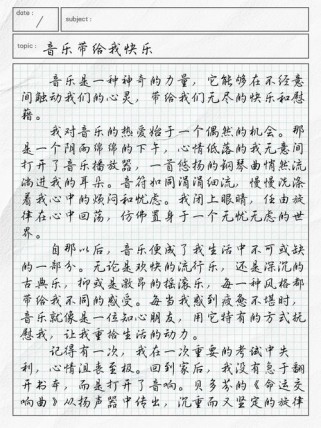 date:
subject:
topic: 音乐带给我快乐
音乐是一种神奇的力量，它能够在不经意
间触动我们的心灵，带给我们无尽的快乐和慰
藉。
我对音乐的热爱始于一个偶然的机会。那
是一个阴雨绵绵的下午，心情低落的我无意间
打开了音乐播放器，一首悠扬的钢琴曲悄然流
淌进我的耳朵。音符如同涓涓细流，慢慢洗涤
着我心中的烦闷和忧虑。我闭上眼睛，任由旋
律在心中回荡，仿佛置身于一个无忧无虑的世
界。
自那以后，音乐便成了我生活中不可或缺
的一部分。无论是欢快的流行乐，还是深沉的
古典乐，抑或是激昂的摇滚乐，每一种风格都
带给我不同的感受。每当我感到疲惫不堪时，
音乐就像是一位知心朋友，用它特有的方式抚
慰我，让我重拾生活的动力。
记得有一次，我在一次重要的考试中失
利，心情沮丧至极。回到家后，我没有急于翻
开书本，而是打开了音响。贝多芬的《命运交
响曲》从扬声器中传出，沉重而又坚定的旋律